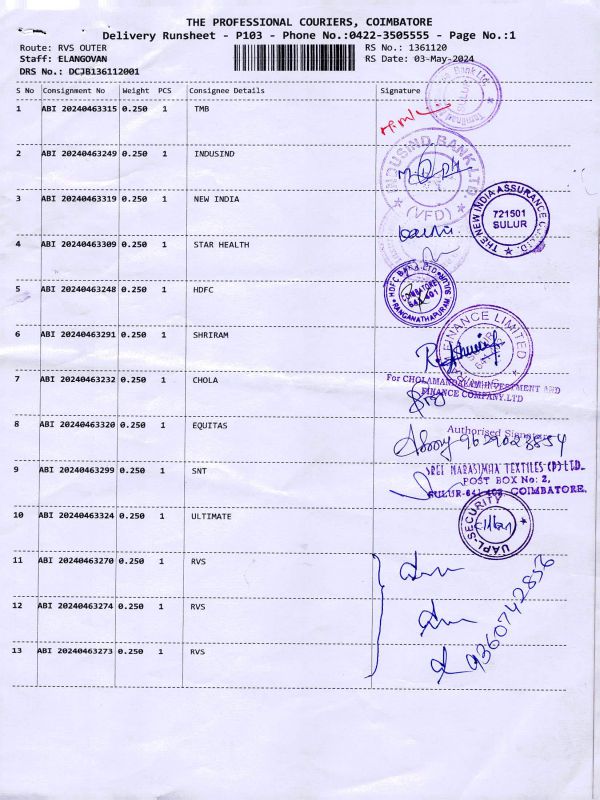 THE PROFESSIONAL COURIERS, COIMBATORE
Delivery Runsheet - P103 - Phone No.:0422-3505555 - Page No.:1
Route: RVS OUTER
RS No.: 1361120
Staff: ELANGOVAN
RS Date: 03-May-2024
DRS No.: DCJB136112001
S No Consignment No Weight PCS Consignee Details Signature
1 ABI 20240463315 0.250 1 TMB
2 ABI 20240463249 0.250 1 INDUSIND
INDUSIND BANK LTD.
(VFD)
3 ABI 20240463319 0.250 1 NEW INDIA
THE NEW INDIA ASSURANCE CO. LTD.
721501
SULUR
4 ABI 20240463309 0.250 1 STAR HEALTH
5 ABI 20240463248 0.250 1 HDFC
HDFC BANK LTD
RANGANATHAPURAM SULUR
COIMBATORE
641 401
6 ABI 20240463291 0.250 1 SHRIRAM
FINANCE LIMITED
7 ABI 20240463232 0.250 1 CHOLA
For CHOLAMANDALAM INVESTMENT AND
FINANCE COMPANY.LTD
8 ABI 20240463320 0.250 1 EQUITAS
Authorised Signatory
9 ABI 20240463299 0.250 1 SNT
SREE NARASIMHA TEXTILES (P) LTD.
POST BOX No: 2,
SULUR-641 402. COIMBATORE.
10 ABI 20240463324 0.250 1 ULTIMATE
UAPL-SECURITY
11 ABI 20240463270 0.250 1 RVS
12 ABI 20240463274 0.250 1 RVS
13 ABI 20240463273 0.250 1 RVS
9360742856